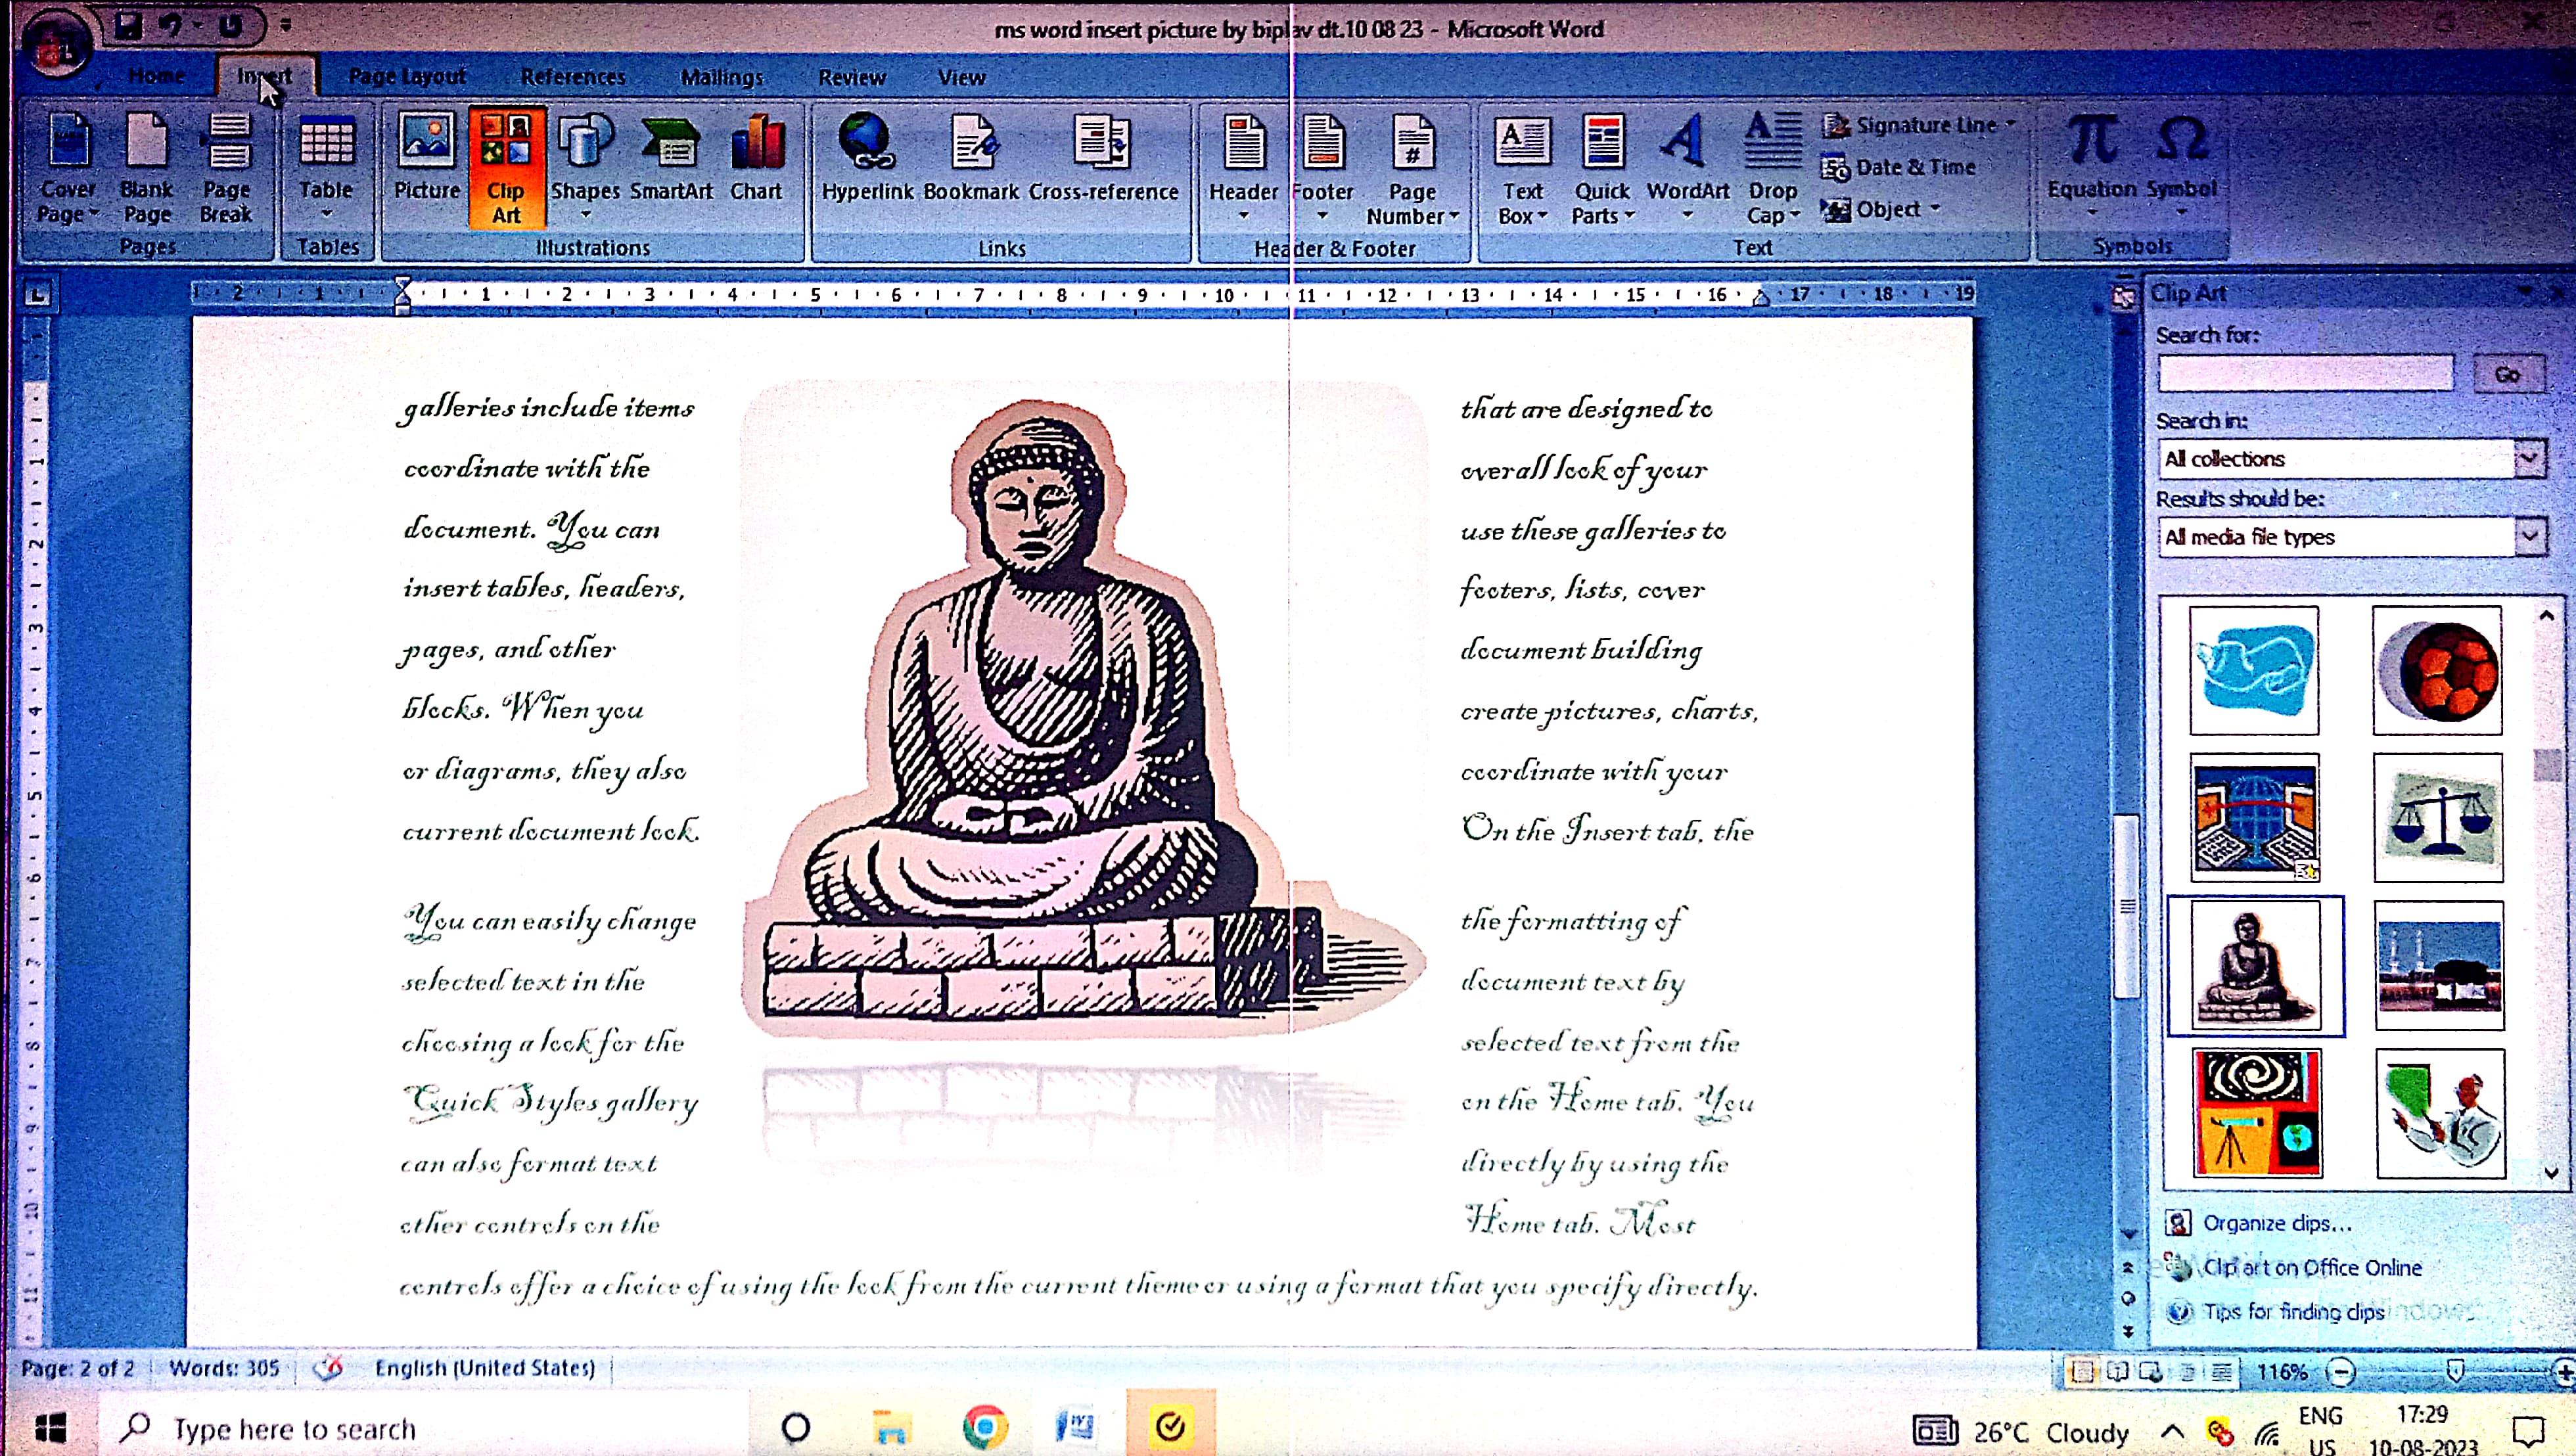 ms word insert picture by biplav dt.10 08 23 - Microsoft Word
Home Insert Page Layout References Mailings Review View
Cover Page
Blank Page
Page Break
Pages
Table
Tables
Picture
Clip Art
Shapes
SmartArt
Chart
Illustrations
Hyperlink
Bookmark
Cross-reference
Links
Header
Footer
Page Number
Header & Footer
Text Box
Quick Parts
WordArt
Drop Cap
Signature Line
Date & Time
Object
Text
Equation
Symbol
Symbols
2 1 1 2 3 4 5 6 7 8 9 10 11 12 13 14 15 16 17 18 19
galleries include items that are designed to
coordinate with the overall look of your
document. You can use these galleries to
insert tables, headers, footers, lists, cover
pages, and other document building
blocks. When you create pictures, charts,
or diagrams, they also coordinate with your
current document look. On the Insert tab, the
You can easily change the formatting of
selected text in the document text by
choosing a look for the selected text from the
Quick Styles gallery on the Home tab. You
can also format text directly by using the
other controls on the Home tab. Most
controls offer a choice of using the look from the current theme or using a format that you specify directly.
Clip Art
Search for:
Go
Search in:
All collections
Results should be:
All media file types
Organize clips...
Clip art on Office Online
Tips for finding clips
Page: 2 of 2 Words: 305 English (United States)
116%
Type here to search
26°C Cloudy
ENG
US
17:29
10-08-2023